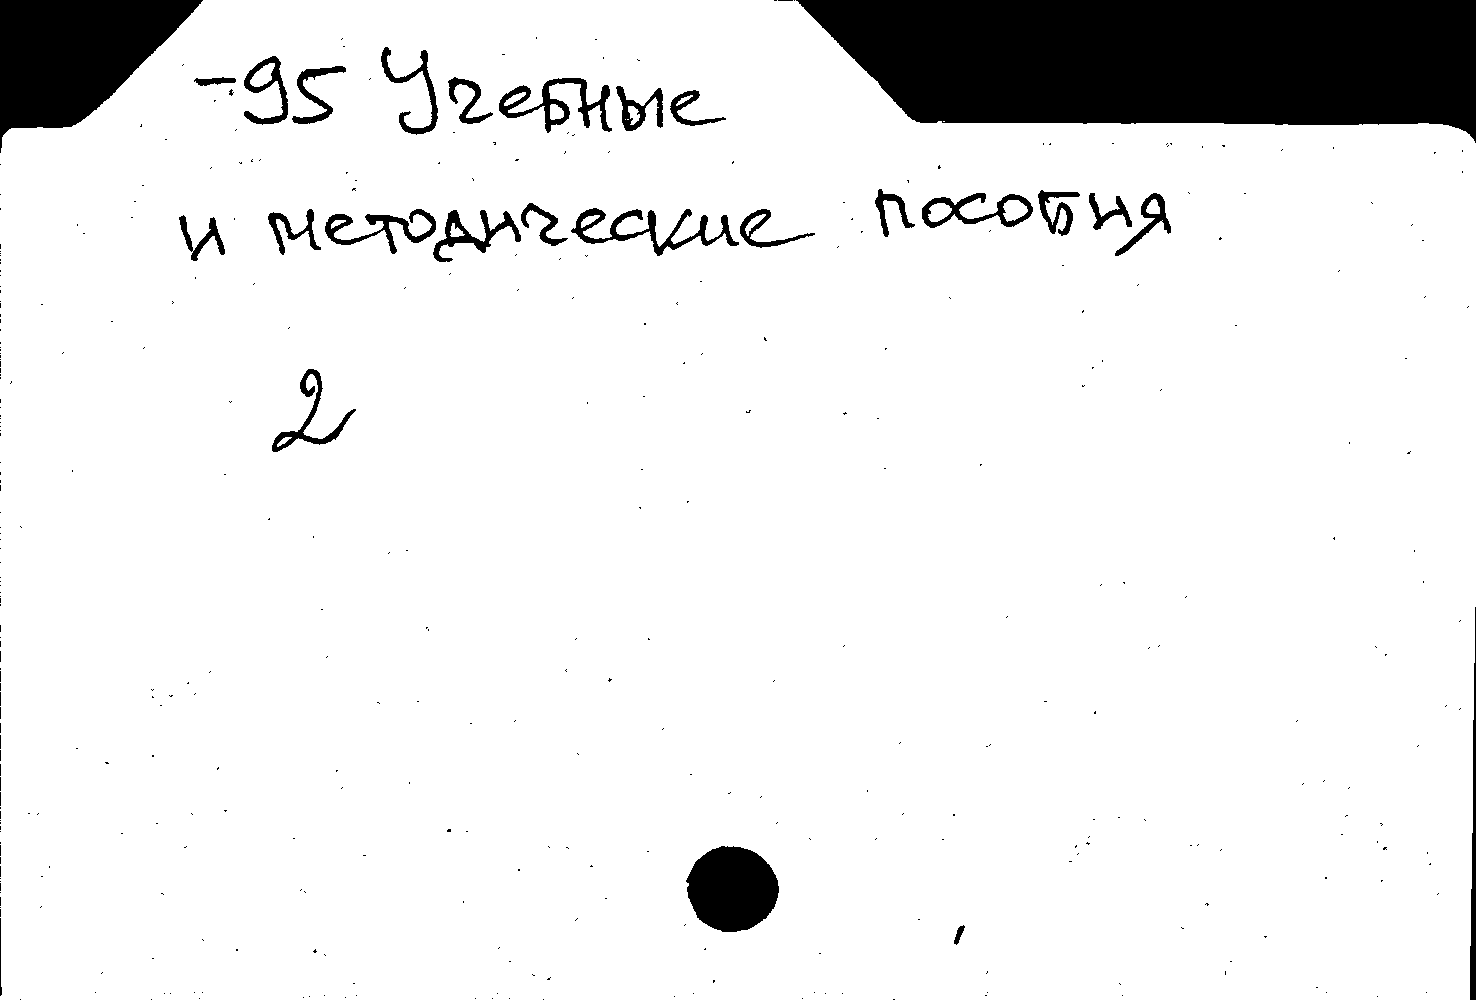 -95 Учебные
и методические пособия
2